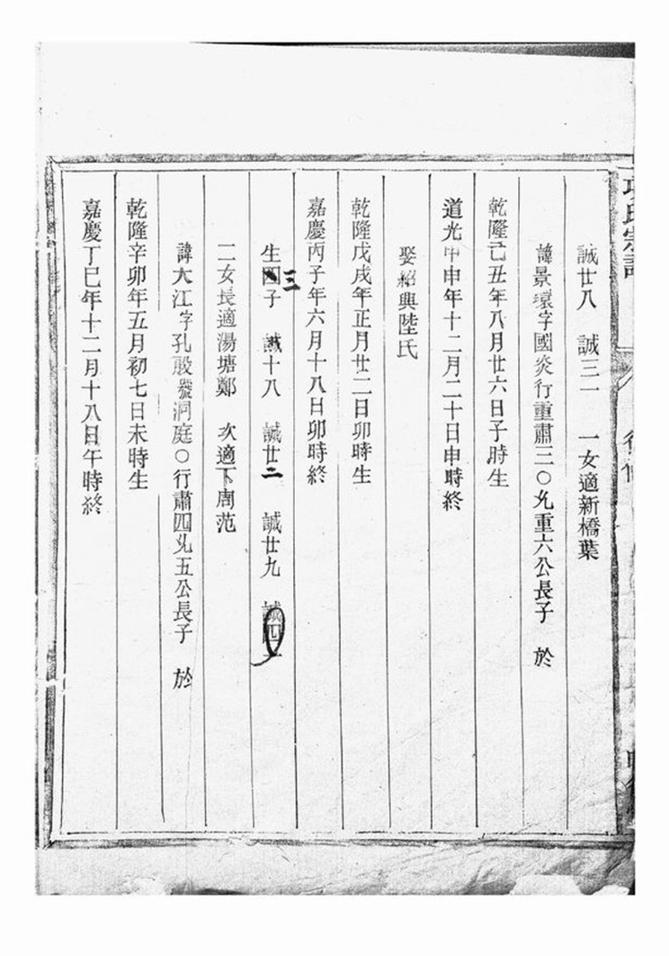 氏宗譜
誠廿八　誠三一　一女適新橋葉
諱景環字國炎行重肅三〇允重六公長子　於
乾隆己丑年八月廿六日子時生
道光甲申年十二月二十日申時終
娶紹興陸氏
乾隆戊戌年正月廿二日卯時生
嘉慶丙子年六月十八日卯時終
生三子　誠十八　誠廿二　誠廿九
二女長適湯塘鄭　次適下周范
諱大江字孔殷發洞庭〇行肅四允五公長子　於
乾隆辛卯年五月初七日未時生
嘉慶丁巳年十二月十八日午時終